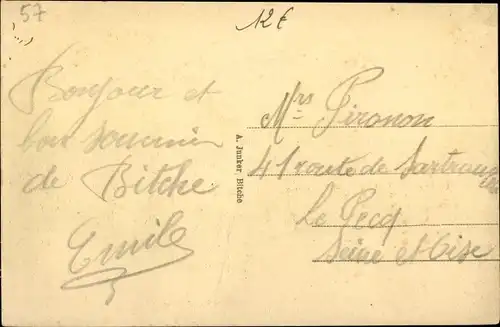 57
12 €
Bonjour et
bon souvenir
de Bitche
Emile
A. Junker, Bitche
Mrs Pironon
41 route de Sartrouville
Le Pecq
Seine et Oise